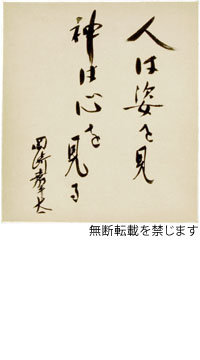 人は姿を見
神は心を見る
無断転載を禁じます